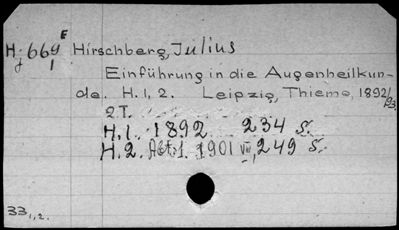 E
H 669 Hirschberg, Julius
f 1
Einführung in die Augenheilkun-
de. H. 1, 2. Leipzig, Thieme, 1892/
2 T.
H. 1. 1892 234 S.
H. 2. Abt. 1. 1901 VIII, 249 S.
33,1,2.